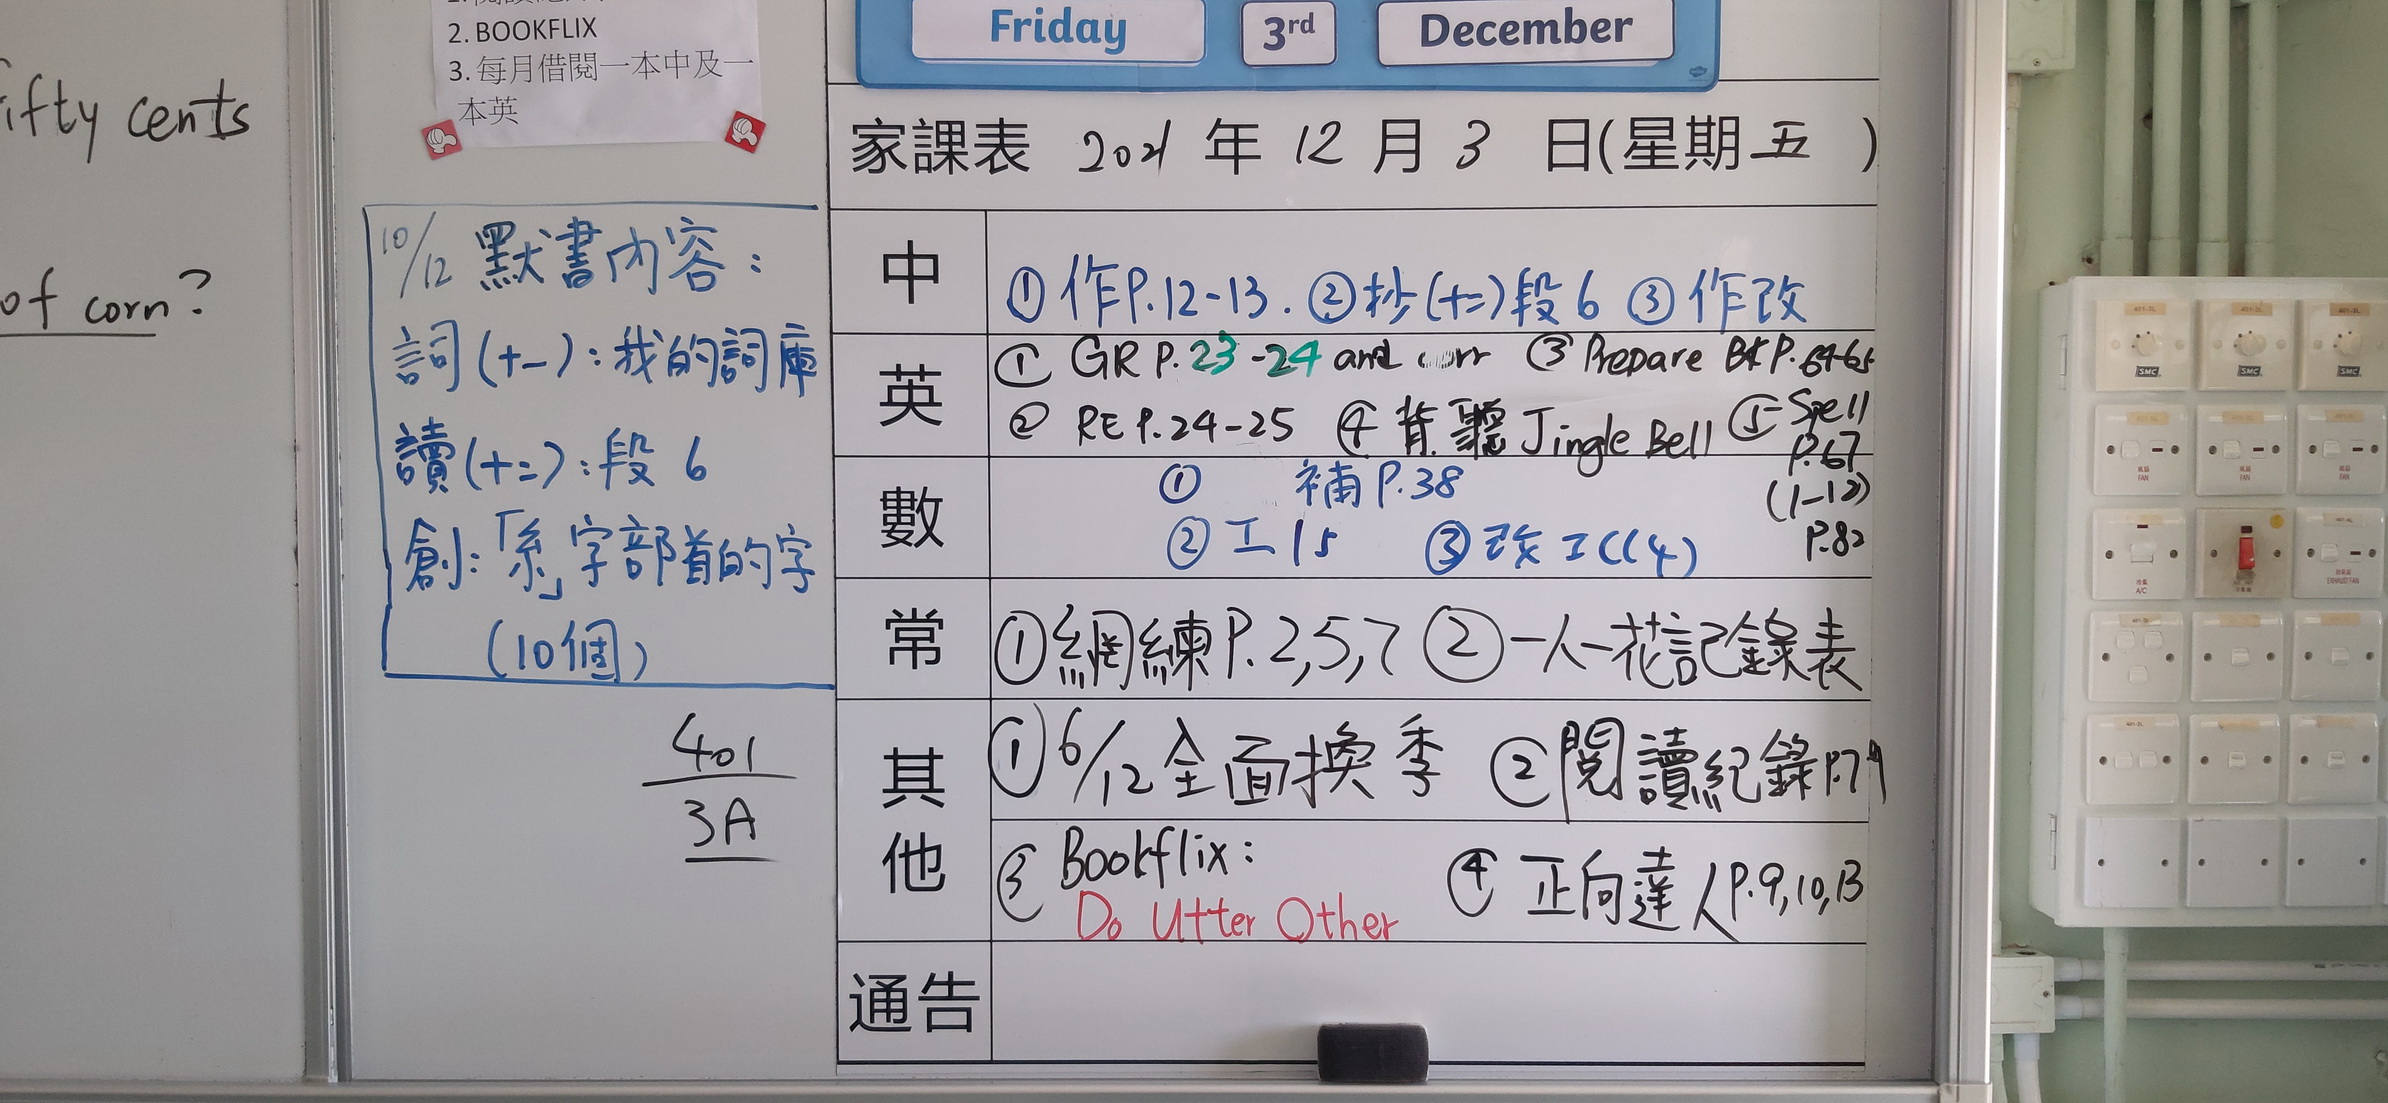 fifty cents
of corn?
2. BOOKFLIX
3. 每月借閱一本中及一
本英
Friday 3rd December
家課表 2021 年 12 月 3 日(星期五)
10/12 默書內容：
詞(十一)：我的詞庫
讀(十二)：段 6
創：「糸」字部首的字
(10個)
401
3A
中
①作P.12-13. ②抄(十二)段6 ③作改
英
① GR P.23-24 and corr ③ Prepare BK P.64-65
② RE P.24-25 ④ 背 聽 Jingle Bell ⑤ Spell
P.67
(1-12)
P.82
數
① 補P.38
② 工15 ③ 改工(14)
常
①網練P.2,5,7 ②一人一花記錄表
其他
①6/12全面換季 ②閱讀紀錄
③ Bookflix: ④ 正向達人P.9,10,13
Do Utter Other
通告
401-3L 401-3L 401-3L
SMC SMC SMC
風扇 風扇 風扇
FAN FAN FAN
冷氣
A/C
抽氣扇
EXHAUST FAN